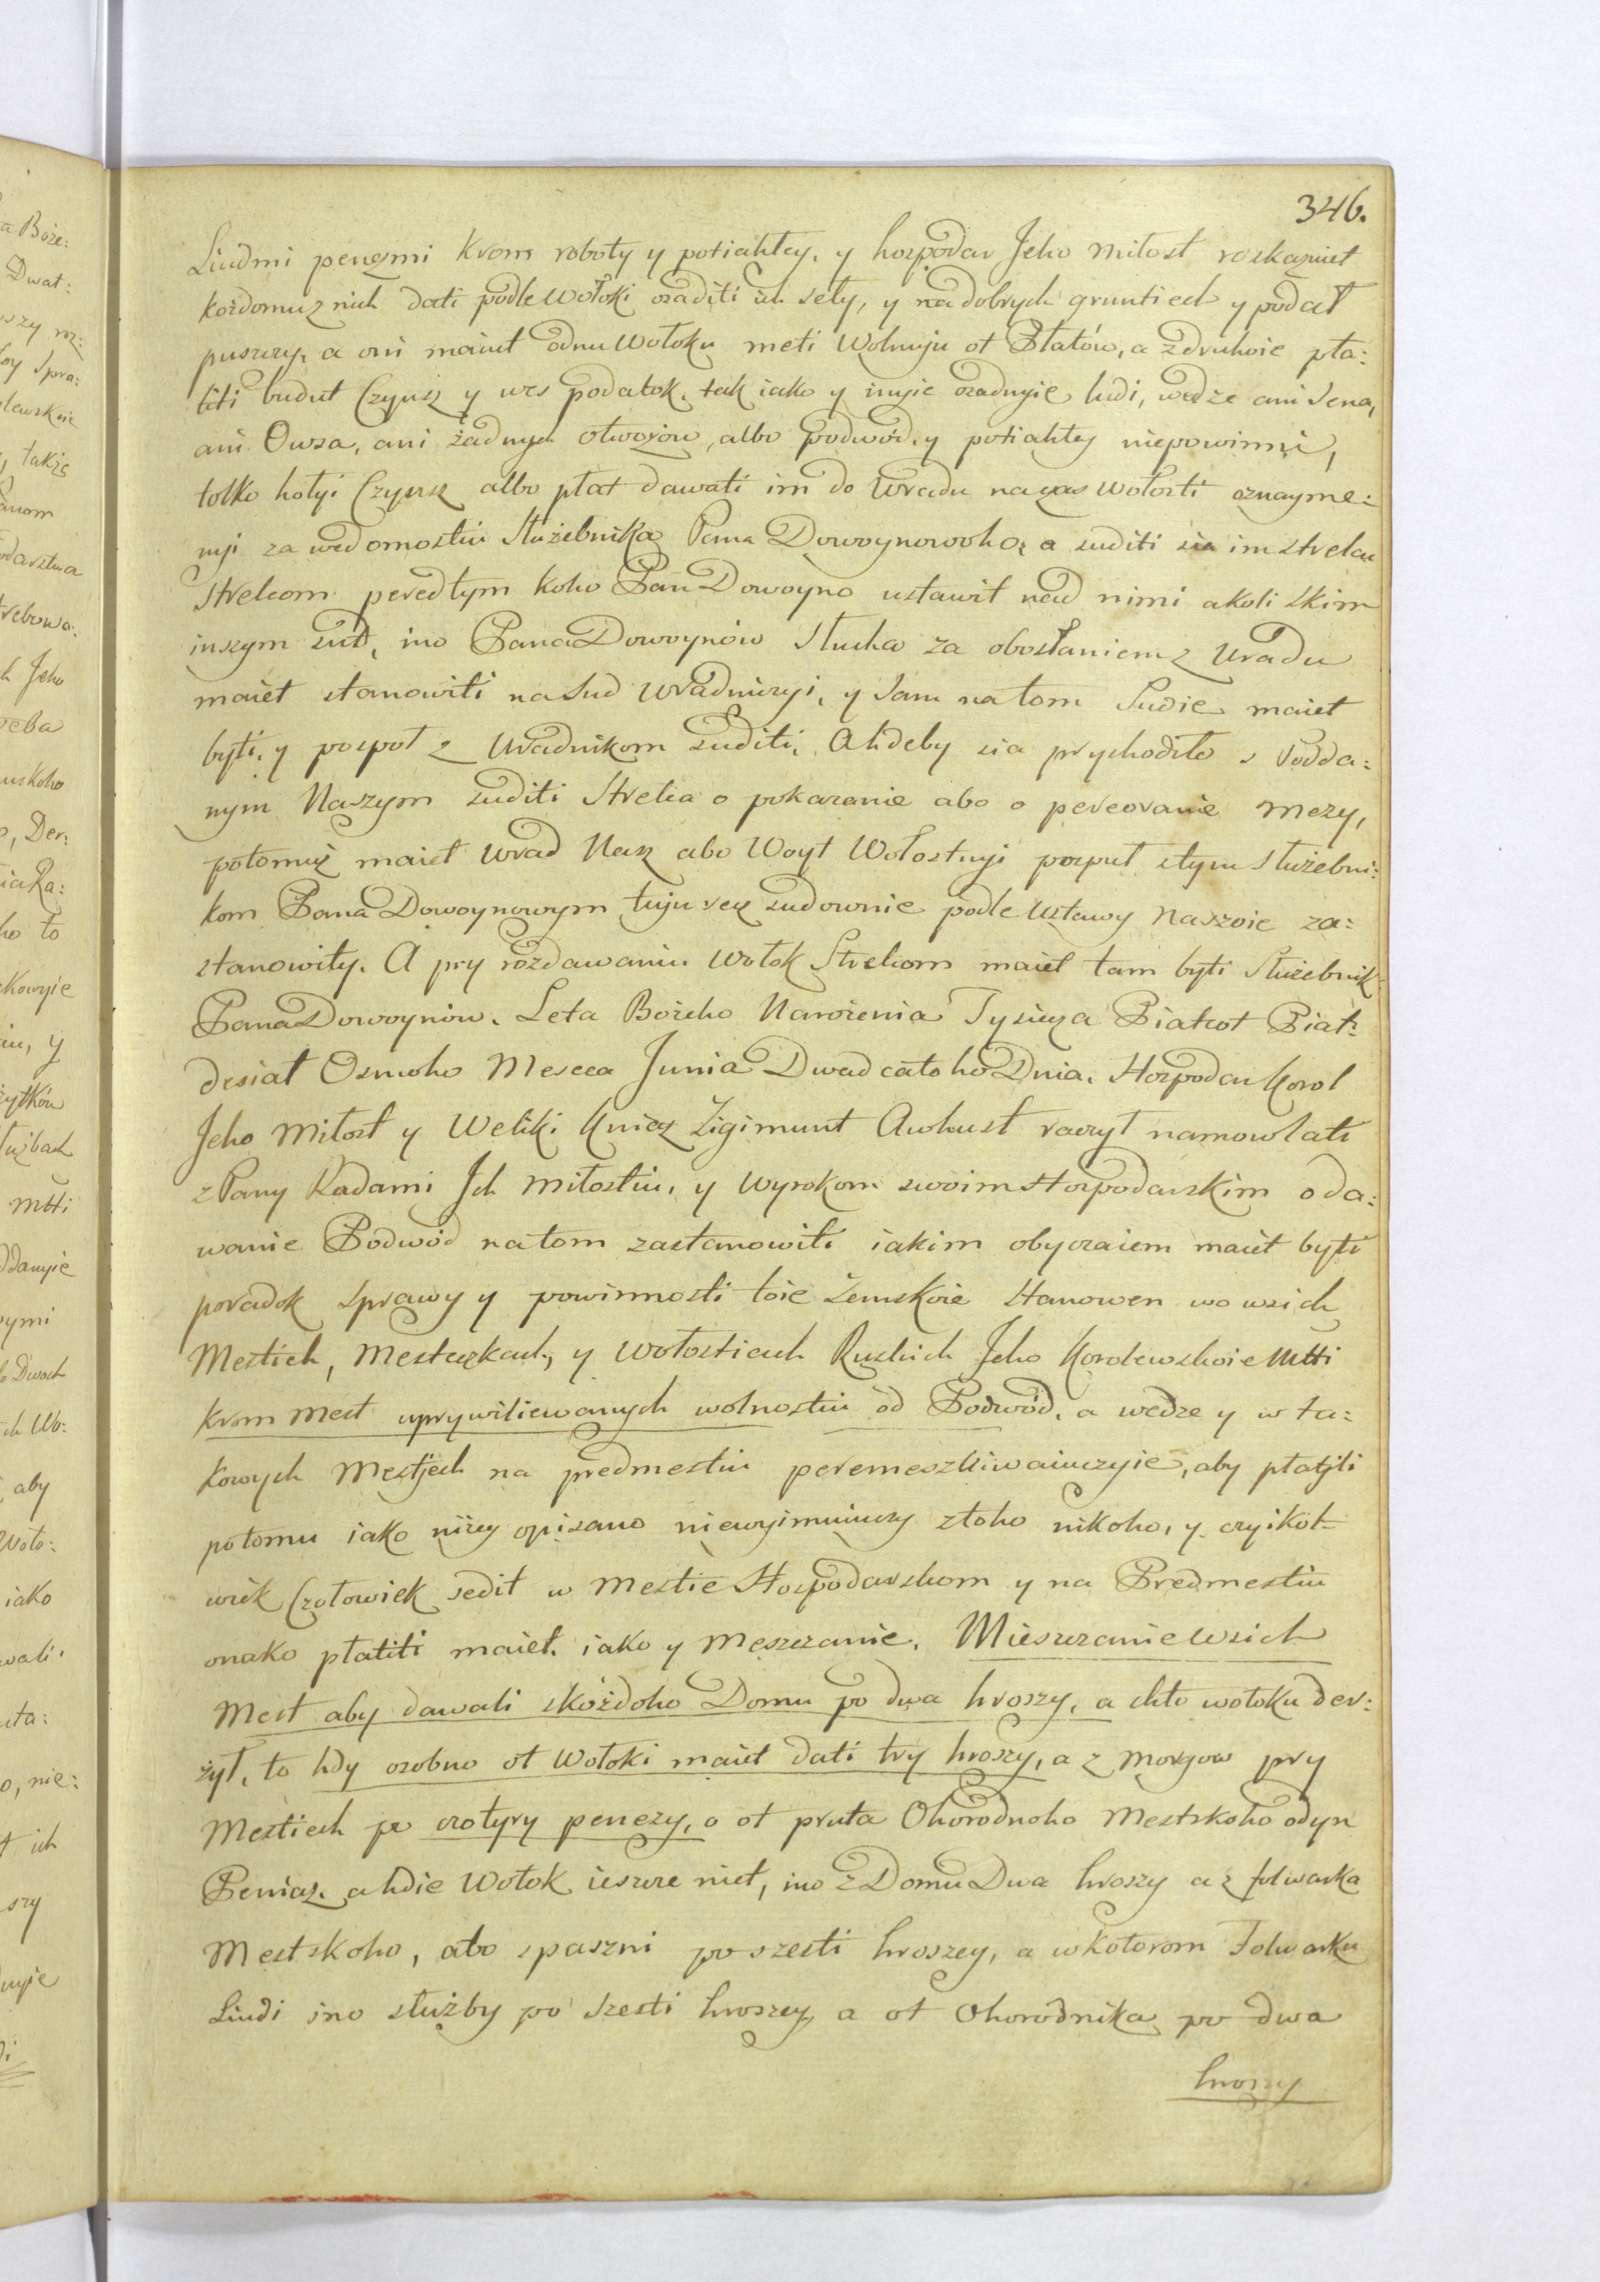 346.
Liudmi penezmi krom roboty y potiahley, y hospodar Jeho Miłost roskazuiet
kożdomu z nich dati podle Wołoki osaditi ich seły, y na dobrych gruntiech y podał
puszczy, a oni maiut odnu Wołoku meti Wolnuju ot Płatów, a z druhoie pła:
titi budut Czynsz y wes podatok, tak iako y inyie osadnyie ludi, wedże ani Sena,
ani Owsa, ani żadnych otworów, albo podwód, y potiahley niepowinni,
tolko hotyi Czynsz albo płat dawati im do Uradu na czas Wołosti oznayme:
nyi za wedomostiu Służebnika Pana Dowoynowoho, a suditi sia im strelcu
Strelcom peredtym koho Pan Dowoyno ustawit nad nimi a koli s kim
inszym sud, ino Pana Dowoynów Sluha za obosłaniem z Uradu
maiet stanowiti na Sud Uradniczyi, y Sam na tom Sudie maiet
byti, y pospoł z Uradnikom suditi, A hdeby sia prychodiło s Podda:
nym Naszym suditi Strelca o pokazanie abo o pereoranie mezy,
potomuż maiet Urad Nasz abo Woyt Wołostnyi pospuł z tym Służebni:
kom Pana Dowoynowym tuju recz sudownie podle Ustawy Naszoie za:
stanowity. A pry rozdawaniu Wołok Strelcom maiet tam byti Służebnik
Pana Dowoynów. Leta Bożeho Narożenia Tysiecza Piatsot Piat:
desiat Osmoho Meseca Junia Dwadcatoho Dnia. Hospodar Korol
Jeho Miłost y Weliki Kniaz Zigimunt Awhust raczył namowlati
z Pany Radami Ich Miłostiu, y Wyrokom swoim Hospodarskim o da:
wanie Podwód na tom zastanowiti iakim obyczaiem maiet byti
poradok sprawy y powinnosti toie Zemskoie Stanowen wo wsich
Mestiech, Mesteczkach, y Wołostiach Ruskich Jeho Korolewskoie Mtti
krom Mest uprywiliewanych wolnostiu od Podwód, a wedże y w ta:
kowych Mestjech na predmestiu peremeszkiwaiuczyie, aby płatjli
potomu iako niżey opisano niewyimuiuczy z toho nikoho, y czyikol-
wiek Człowiek sedit w Mestie Hospodarskom y na Predmestiu
onako płatiti maiet, iako y Meszczanie. Mieszczanie Wsich
Mest aby dawali s kożdoho Domu po dwa hroszy, a chto wołoku der:
żył, to hdy osobno ot Wołoki maiet dati try hroszy, a z Morgow pry
Mestiech po czotyry penezy, a ot pruta Ohorodnoho Mestskoho odyn
Peniaz, a hdie Wołok ieszcze niet, ino z Domu Dwa hroszy a z folwarka
Mestskoho, abo s paszni po szesti hroszey, a w kotorom Folwarku
Liudi ino służby po Szesti hroszey, a ot Ohorodnika po dwa
hroszy